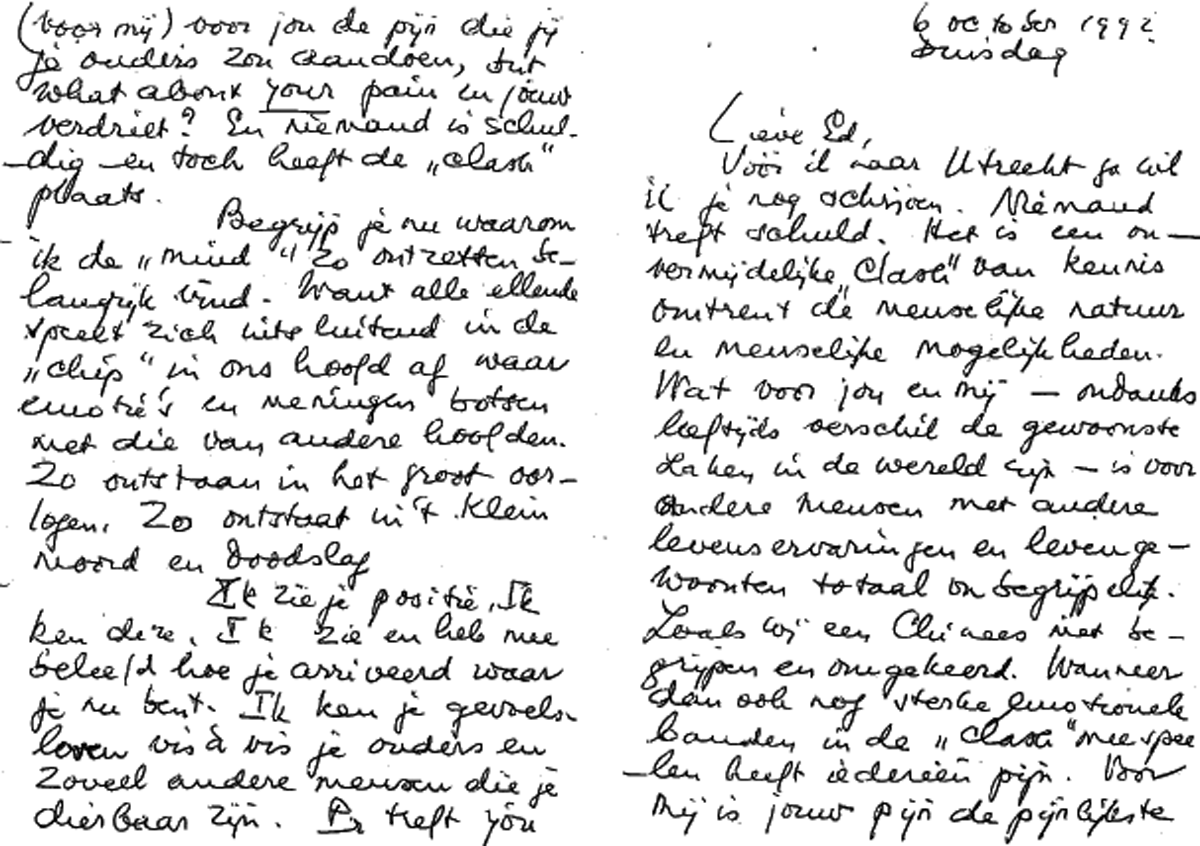 6 october 1992
Dinsdag
Lieve Ed,
Vóór ik naar Utrecht ga wil
ik je nog schrijven. Niemand
treft schuld. Het is een on-
vermijdelijke „Clash" van kennis
omtrent de menselijke natuur
en menselijke mogelijkheden.
Wat voor jou en mij — ondanks
leeftijds verschil de gewoonste
zaken in de wereld zijn — is voor
andere mensen met andere
levenservaringen en levenge-
woonten totaal onbegrijpelijk.
Zoals wij een Chinees niet be-
grijpen en omgekeerd. Wanneer
dan ook nog sterke emotionele
banden in de „Clash" meespee
-len heeft iedereen pijn. Voor
mij is jouw pijn de pijnlijkste
(voor mij) voor jou de pijn die jij
je ouders zou aandoen, but
what about your pain en jouw
verdriet? En niemand is schul-
-dig — en toch heeft de „clash"
plaats.
Begrijp je nu waarom
ik de „mind" zo ontzetten be-
langrijk vind. Want alle ellende
speelt zich uitsluitend in de
„chip" in ons hoofd af waar
emotie's en meningen botsen
met die van andere hoofden.
Zo ontstaan in het groot oor-
logen. Zo ontstaat in 't klein
moord en doodslag
Ik zie je positie. Ik
ken deze. Ik zie en heb mee
beleefd hoe je arriveerd waar
je nu bent. Ik ken je gevoels-
leven vis à vis je ouders en
zoveel andere mensen die je
dierbaar zijn. Er treft jou